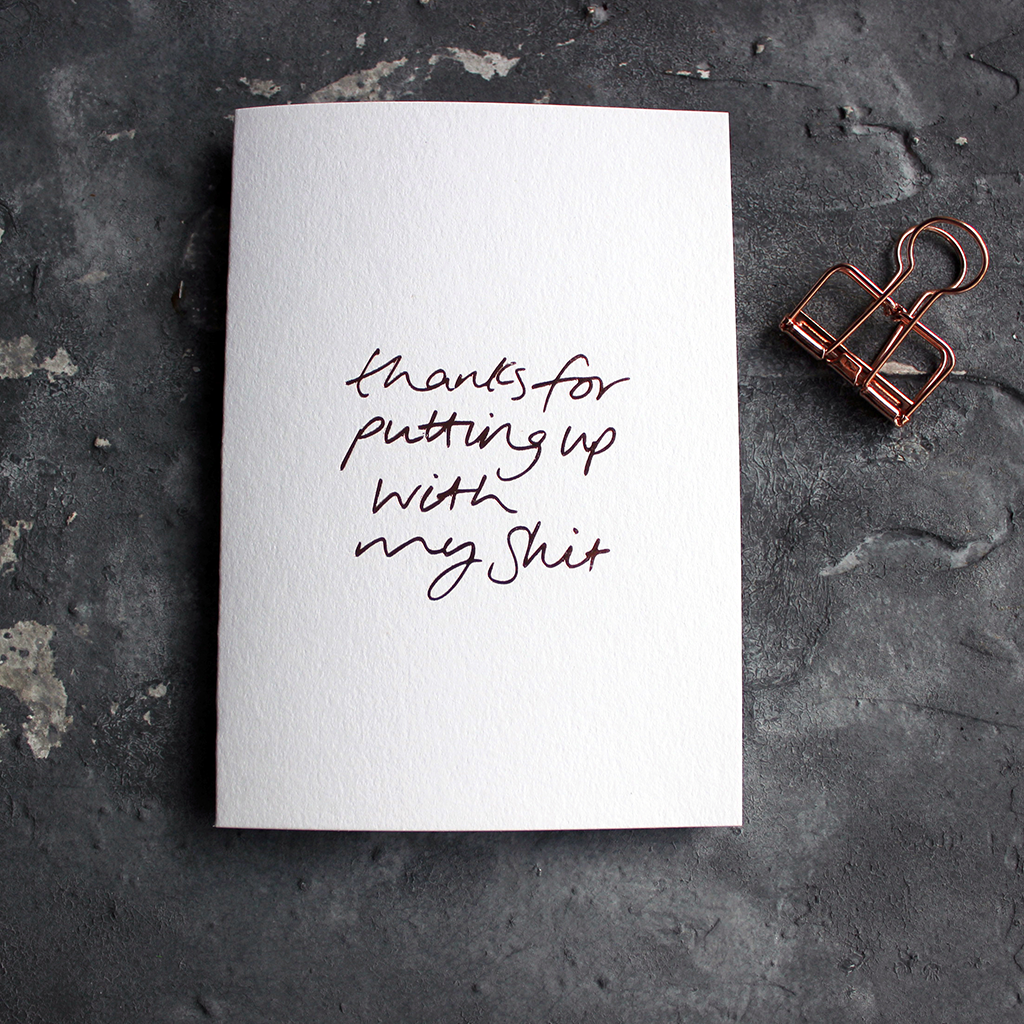 thanks for
putting up
with
my shit